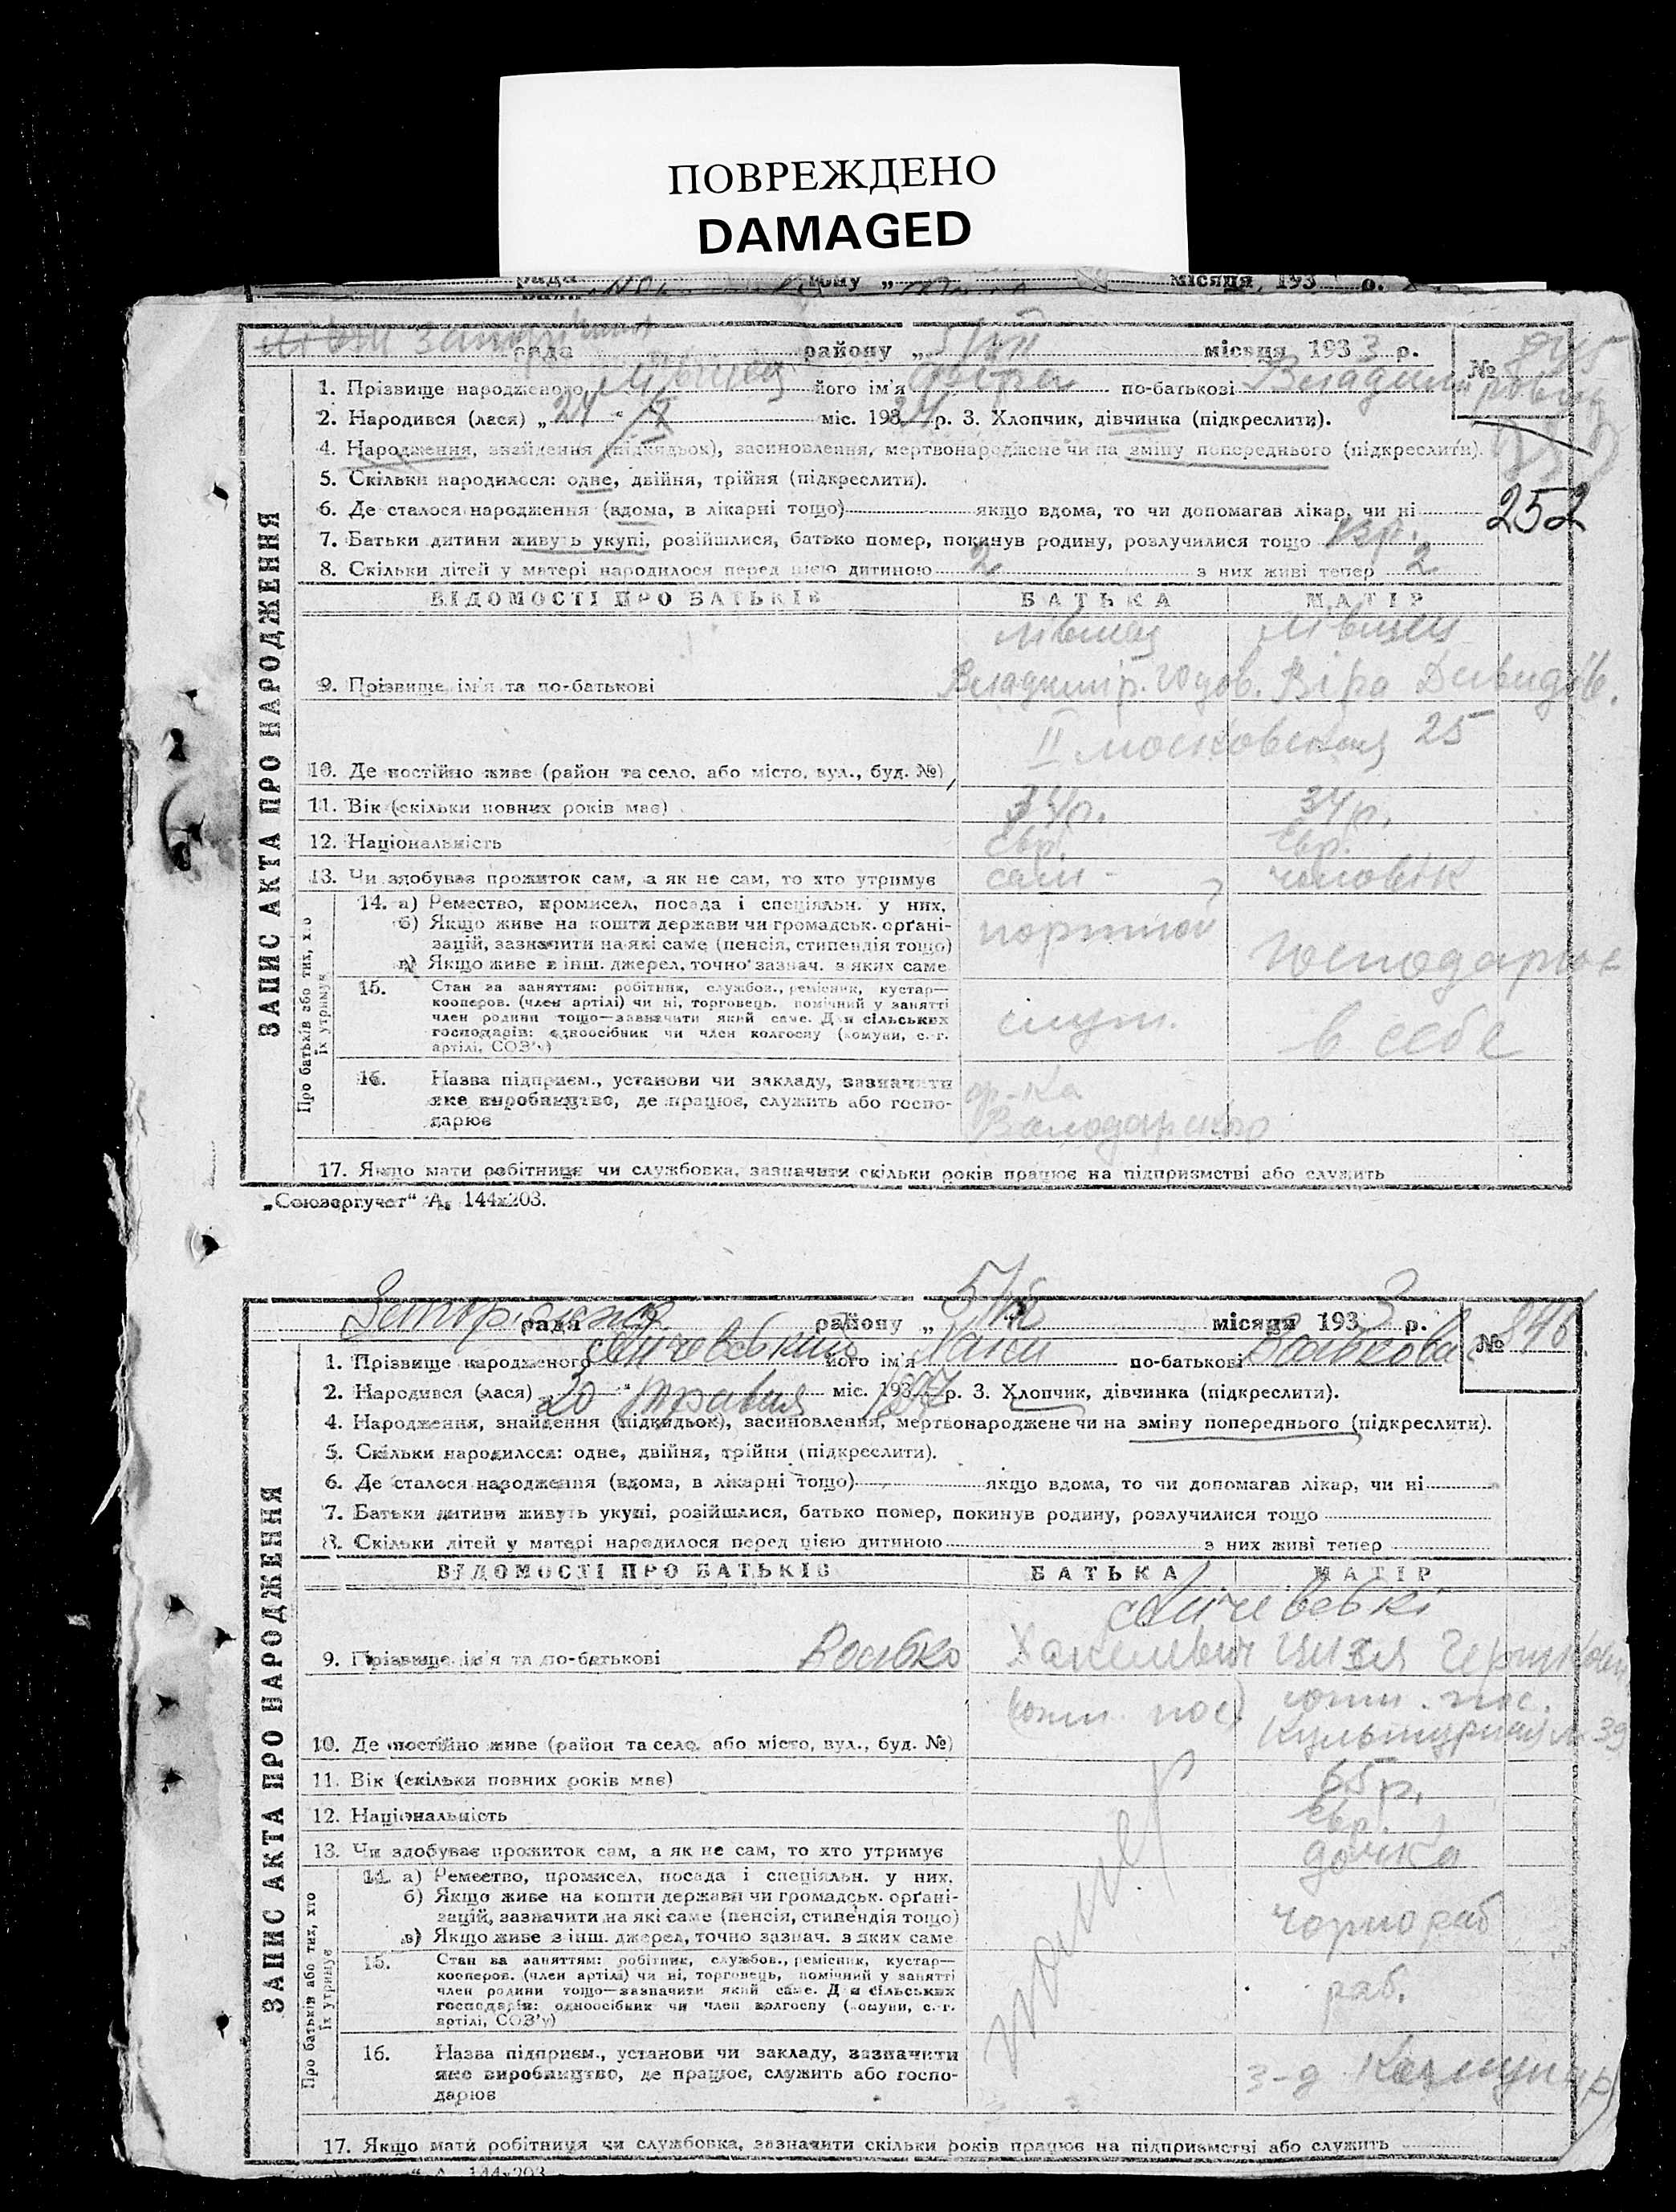 ПОВРЕЖДЕНО
DAMAGED
рада району „ місяця 193 р.
рада району „5/VII місяця 1933 р. № 845
1. Прізвище народженого Лівшец його ім'я по-батькові Владимировна
2. Народився (лася) „24 міс. 193 р. 3. Хлопчик, дівчинка (підкреслити).
4. Народження, знайдення (підкидьок), засиновлення, мертвонароджене чи на зміну попереднього (підкреслити).
5. Скільки народилося: одне, двійня, трійня (підкреслити).
252
6. Де сталося народження (вдома, в лікарні тощо) якщо вдома, то чи допомагав лікар, чи ні
7. Батьки дитини живуть укупі, розійшлися, батько помер, покинув родину, розлучилися тощо
8. Скільки дітей у матері народилося перед цією дитиною 2 з них живі тепер 2
ЗАПИС АКТА ПРО НАРОДЖЕННЯ
ВІДОМОСТІ ПРО БАТЬКІВ БАТЬКА МАТІР
Лівшец Лівшец
9. Прізвище, ім'я та по-батькові Владимір. Юдов. Віра Давидів.
II московская 25
10. Де постійно живе (район та село, або місто, вул., буд. №)
11. Вік (скільки повних років має) 34р. 34р.
12. Національність євр. євр.
13. Чи здобуває прожиток сам, а як не сам, то хто утримує сам чоловік
Про батьків або тих, хто їх утримує
14. а) Ремество, промисел, посада і спеціяльн. у них.
б) Якщо живе на кошти держави чи громадськ. органі-
зацій, зазначити на які саме (пенсія, стипендія тощо) портной
в) Якщо живе з інш. джерел, точно зазнач. з яких саме господарює
15. Стан за заняттям: робітник, службов., ремісник, кустар—
кооперов. (член артілі) чи ні, торговець, помічний у занятті
член родини тощо—зазначити який саме. Для сільських
господарів: одноосібник чи член колгоспу (комуни, с.-г.
артілі, СОЗ'у) служ. в себе
16. Назва підприєм., установи чи закладу, зазначити ф-ка
яке виробництво, де працює, служить або госпо- Володарского
дарює
17. Якщо мати робітниця чи службовка, зазначити скільки років працює на підприємстві або служить
„Союзоргучет“ А. 144х203.
рада району „ 5/VII місяця 1933 р. № 846
1. Прізвище народженого його ім'я по-батькові
2. Народився (лася) „20“ травня міс. 193 р. 3. Хлопчик, дівчинка (підкреслити).
4. Народження, знайдення (підкидьок), засиновлення, мертвонароджене чи на зміну попереднього (підкреслити).
5. Скільки народилося: одне, двійня, трійня (підкреслити).
6. Де сталося народження (вдома, в лікарні тощо) якщо вдома, то чи допомагав лікар, чи ні
7. Батьки дитини живуть укупі, розійшлися, батько помер, покинув родину, розлучилися тощо
8. Скільки дітей у матері народилося перед цією дитиною з них живі тепер
ЗАПИС АКТА ПРО НАРОДЖЕННЯ
ВІДОМОСТІ ПРО БАТЬКІВ БАТЬКА МАТІР
9. Прізвище, ім'я та по-батькові
10. Де постійно живе (район та село, або місто, вул., буд. №) Культурная № 39
11. Вік (скільки повних років має) 65р.
12. Національність євр.
13. Чи здобуває прожиток сам, а як не сам, то хто утримує дочка
Про батьків або тих, хто їх утримує
14. а) Ремество, промисел, посада і спеціяльн. у них.
б) Якщо живе на кошти держави чи громадськ. органі-
зацій, зазначити на які саме (пенсія, стипендія тощо) чорнораб
в) Якщо живе з інш. джерел, точно зазнач. з яких саме
15. Стан за заняттям: робітник, службов., ремісник, кустар—
кооперов. (член артілі) чи ні, торговець, помічний у занятті
член родини тощо—зазначити який саме. Для сільських
господарів: одноосібник чи член колгоспу (комуни, с.-г.
артілі, СОЗ'у) раб.
помер
16. Назва підприєм., установи чи закладу, зазначити
яке виробництво, де працює, служить або госпо- з-д Комунар
дарює
17. Якщо мати робітниця чи службовка, зазначити скільки років працює на підприємстві або служить
А. 144х203